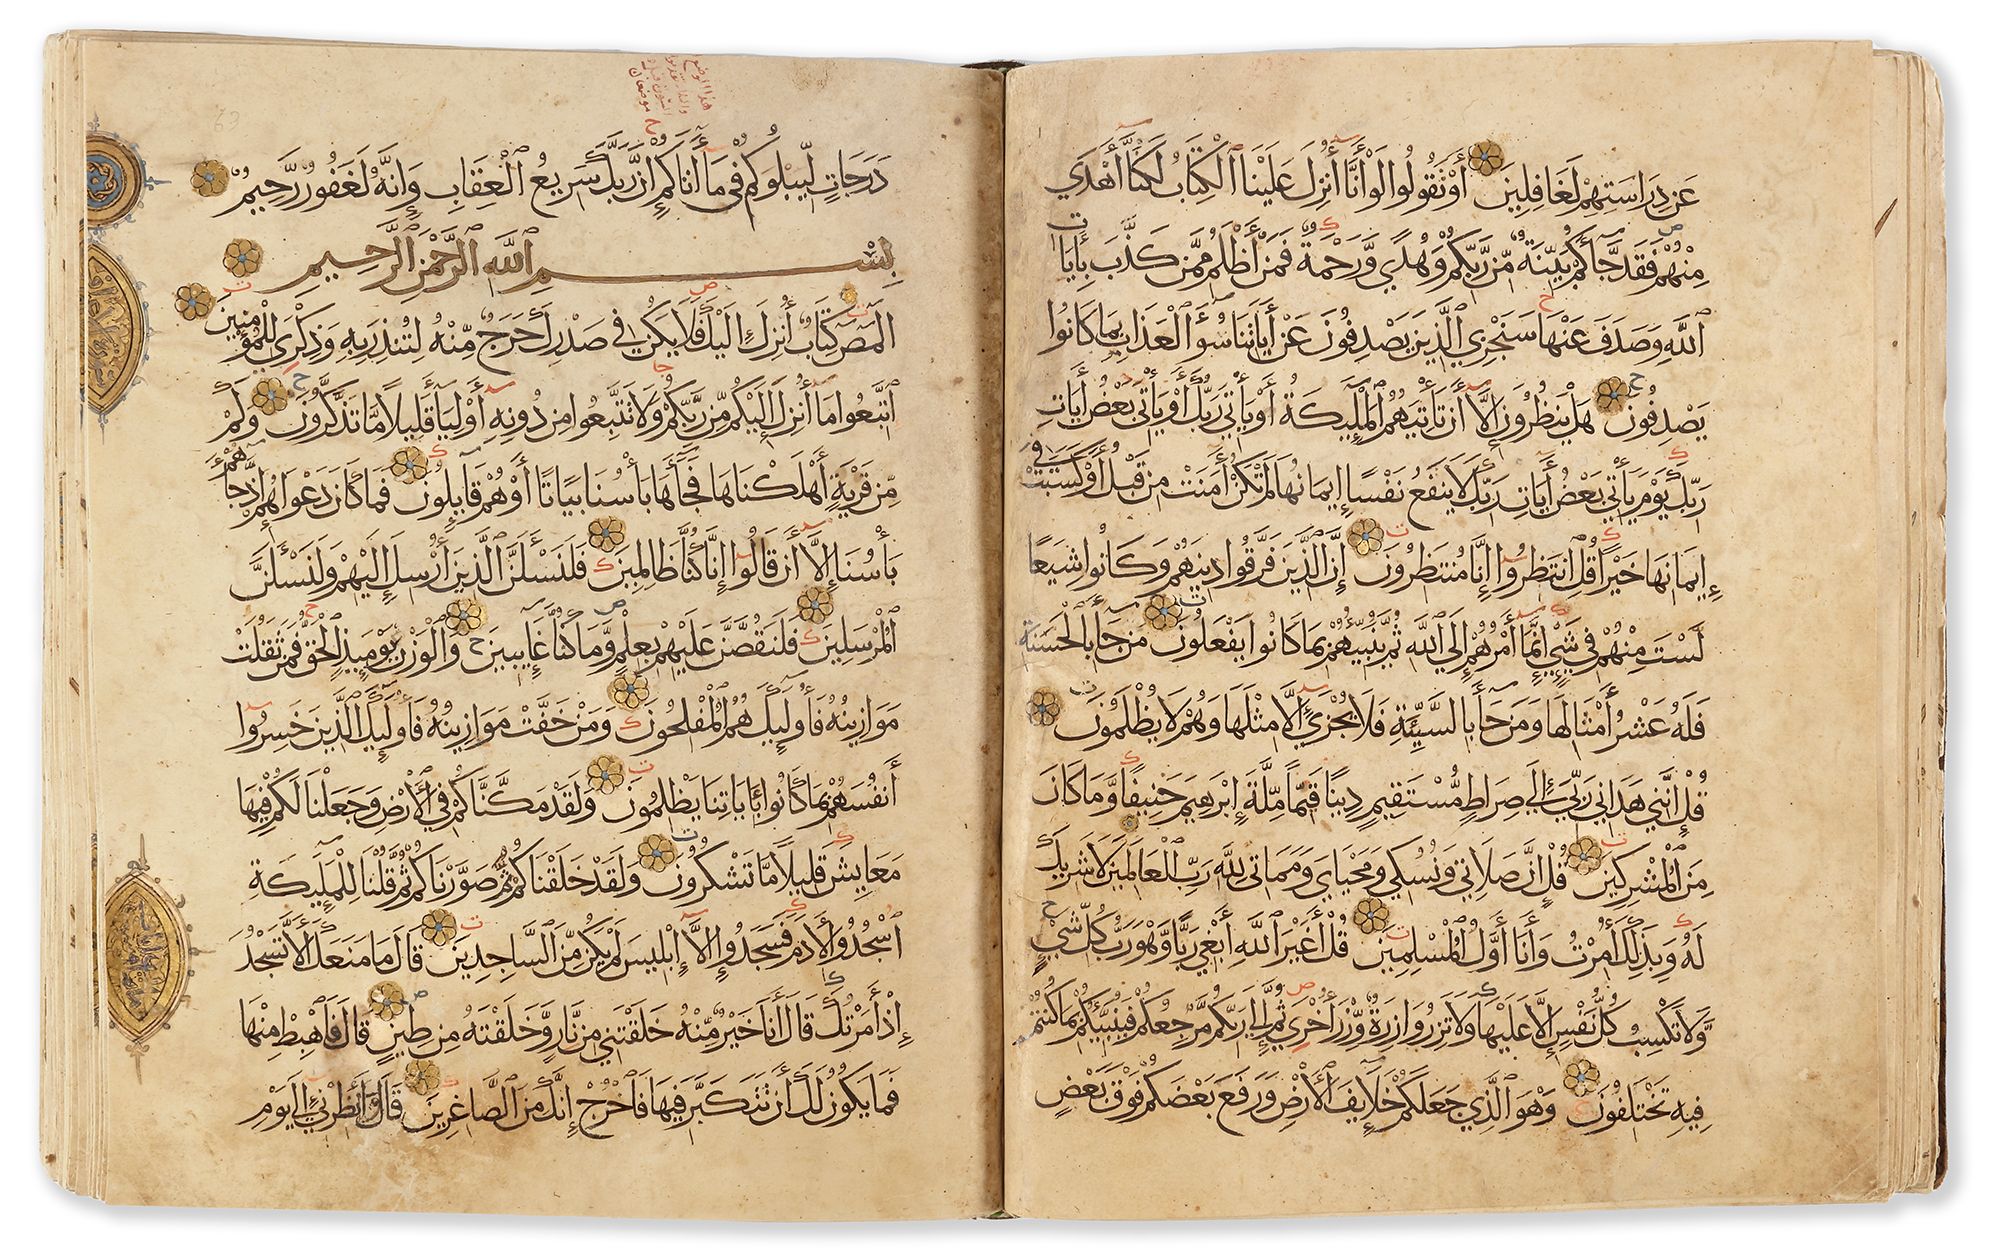 عن دراستهم لغافلين أو تقولوا لو أنا أنزل علينا الكتاب لكنا أهدى
منهم فقد جاكم بينة من ربكم وهدى ورحمة فمن أظلم ممن كذب بأيات
الله وصدف عنها سنجزي الذين يصدفون عن أياتنا سو العذاب بما كانوا
يصدفون هل ينظرون إلا أن تأتيهم المليكة أو يأتي ربك أو يأتي بعض أيات
ربك يوم يأتي بعض أيات ربك لا ينفع نفسا إيمانها لم تكن أمنت من قبل أو كسبت في
إيمانها خيرا قل انتظروا إنا منتظرون إن الذين فرقوا دينهم وكانوا شيعا
لست منهم في شي إنما أمرهم إلى الله ثم ينبيهم بما كانوا يفعلون من جا بالحسنة
فله عشر أمثالها ومن جا بالسيئة فلا يجزى إلا مثلها وهم لا يظلمون
قل إنني هداني ربي إلى صراط مستقيم دينا قيما ملة إبرهيم حنيفا وما كان
من المشركين قل إن صلاتي ونسكي ومحياي ومماتي لله رب العالمين لا شريك
له وبذلك أمرت وأنا أول المسلمين قل أغير الله أبغي ربا وهو رب كل شي
ولا تكسب كل نفس إلا عليها ولا تزر وازرة وزر أخرى ثم إلى ربكم مرجعكم فينبيكم بما كنتم
فيه تختلفون وهو الذي جعلكم خلايف الأرض ورفع بعضكم فوق بعض
درجات ليبلوكم في ما أتاكم إن ربك سريع العقاب وإنه لغفور رحيم
بسم الله الرحمن الرحيم
المص كتاب أنزل إليك فلا يكن في صدرك حرج منه لتنذر به وذكرى للمؤمنين
اتبعوا ما أنزل إليكم من ربكم ولا تتبعوا من دونه أوليا قليلا ما تذكرون وكم
من قرية أهلكناها فجاها بأسنا بياتا أو هم قايلون فما كان دعواهم إذ جاهم
بأسنا إلا أن قالوا إنا كنا ظالمين فلنسألن الذين أرسل إليهم ولنسلن
المرسلين فلنقصن عليهم بعلم وما كنا غايبين والوزن يوميذ الحق فمن ثقلت
موازينه فأوليك هم المفلحون ومن خفت موازينه فأوليك الذين خسروا
أنفسهم بما كانوا بأياتنا يظلمون ولقد مكناكم في الأرض وجعلنا لكم فيها
معايش قليلا ما تشكرون ولقد خلقناكم ثم صورناكم ثم قلنا للمليكة
اسجدوا لأدم فسجدوا إلا إبليس لم يكن من الساجدين قال ما منعك ألا تسجد
إذ أمرتك قال أنا خير منه خلقتني من نار وخلقته من طين قال فاهبط منها
فما يكون لك أن تتكبر فيها فاخرج إنك من الصاغرين قال أنظرني إلى يوم